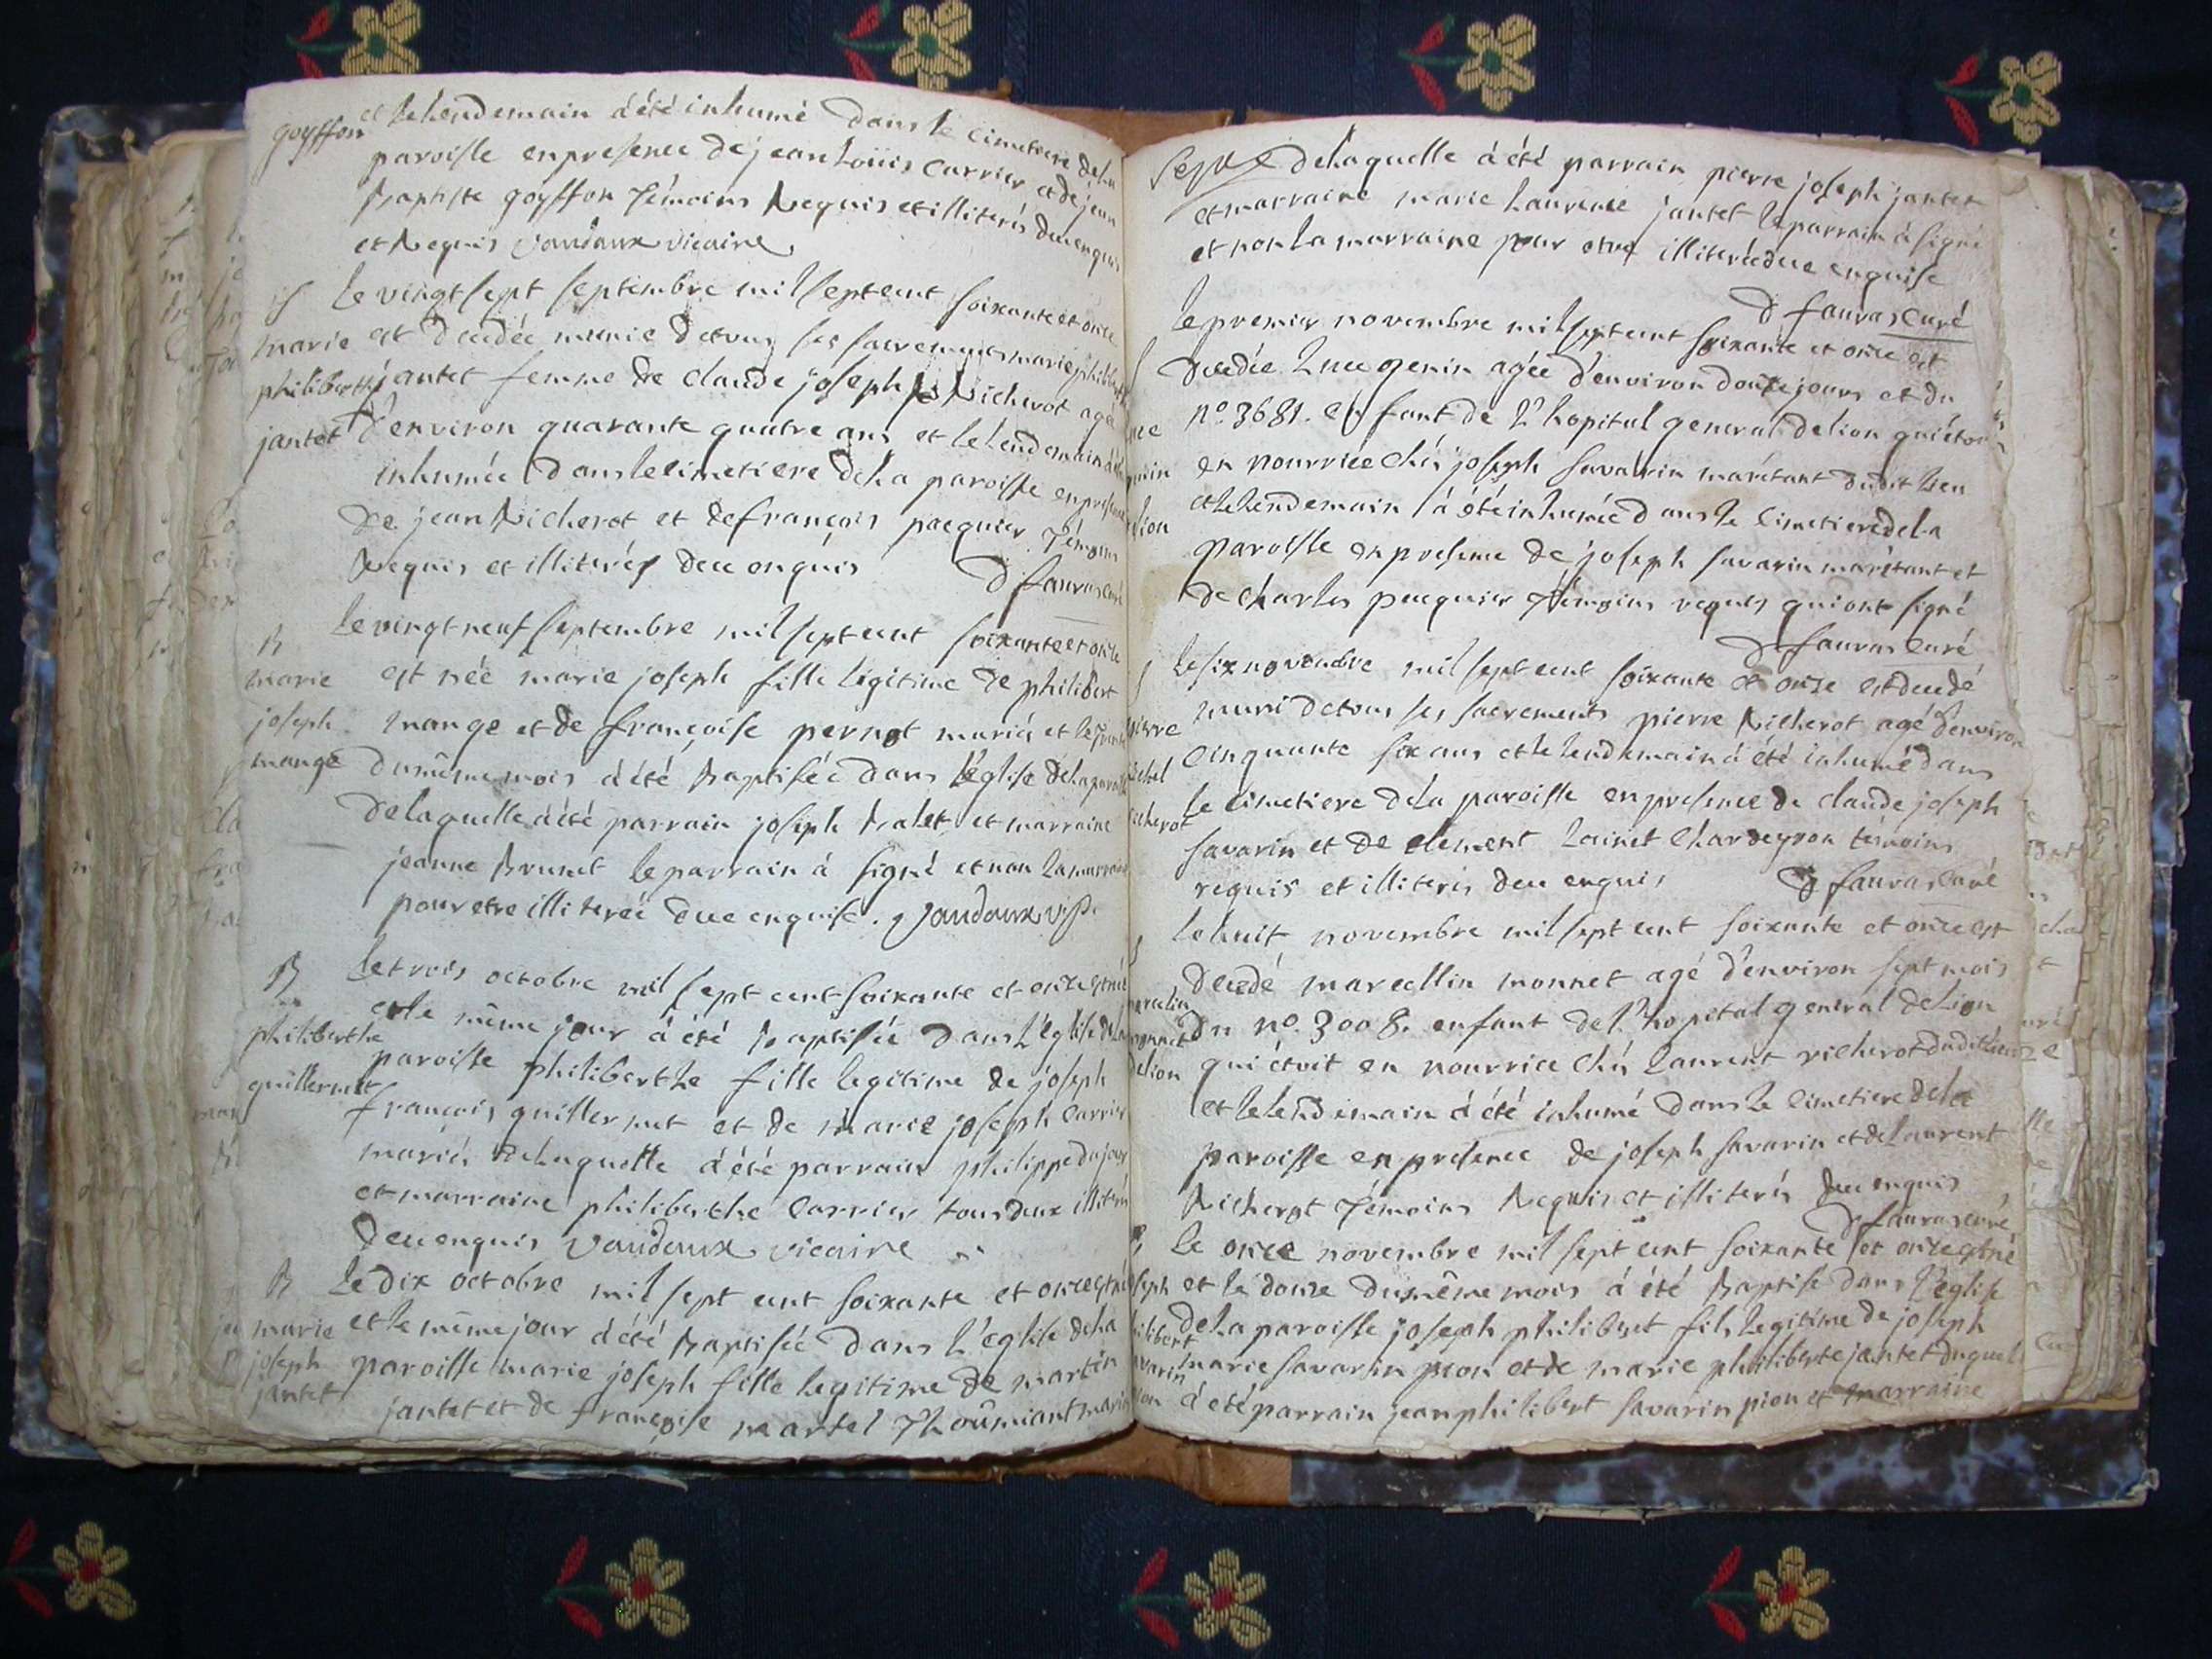 goyffon
et le lendemain á été inhumé dans le cimetiere dela
paroisse en presence de jean Loüis carrier et de jean
Baptiste goyffon Témoins Requis et illiterés de ce enquis
et Requis vaudaux vicaire
S
marie
philiberthe
jantet
le vingt sept septembre mil sept cent soixante et onze
est decedée munie de tous ses sacrements marie philiberthe
jantet femme de claude joseph Richerot agée
d'environ quarante quatre ans et le lendemain à été
inhumée dans le cimetiere dela paroisse en presence
de jean Richerot et de françois pacquier Témoins
Requis et illiterés de ce enquis D favras curé
B
marie
joseph
mange
le vingt neuf septembre mil sept cent soixante et onze
est née marie joseph fille légitime de philibert
mange et de françoise pernot mariés et le trente
du même mois á été Baptisée dans l'église dela paroisse
de laquelle á été parrain joseph Balet et marraine
jeanne Brunet le parrain á signé et non la marraine
pour etre illiterée de ce enquise. vaudaux vic.
B
philiberthe
guillermet
le trois octobre mil sept cent soixante et onze est née
et le même jour á été Baptisée dans l'église dela
paroisse philiberthe fille legitime de joseph
françois guillermet et de marie joseph carrier
mariés de laquelle á été parrain philippe dujour
et marraine philiberthe carrier tous deux illiterés
de ce enquis vaudaux vicaire
B
marie
joseph
jantet
le dix octobre mil sept cent soixante et onze est née
et le même jour á été Baptisée dans l'église dela
paroisse marie joseph fille legitime de martin
jantet et de françoise martel Thoumiant mariés
de laquelle á été parrain pierre joseph jantet
et marraine marie Laurence jantet le parrain á signé
et non la marraine pour etre illiterée de ce enquise
D favras curé
le premier novembre mil sept cent soixante et onze est
decedée Luce genin agée d'environ douze jours et du
n° 3681. enfant de l'hopital general de lion qui étoit
en nourrice chés joseph savarin marétant dudit lieu
et le lendemain á été inhumée dans le cimetiere dela
paroisse en presence de joseph savarin marétant et
de charles pacquier Témoins requis qui ont signé
D favras curé
le six novembre mil sept cent soixante et onze est decedé
muni de tous ses sacrements pierre Richerot agé d'environ
cinquante six ans et le lendemain á été inhumé dans
le cimetiere dela paroisse en presence de claude joseph
savarin et de clement Lainet chardeyron témoins
requis et illiteris de ce enquis D favras curé
le huit novembre mil sept cent soixante et onze est
decedé marcellin monnet agé d'environ sept mois
du n°. 3008. enfant de l'hopital general de Lion
qui étoit en nourrice chés Laurent richerot dudit lieu
et le lendemain á été inhumé dans le cimetiere dela
paroisse en presence de joseph savarin et de Laurent
Richerot Témoins Requis et illiterés de ce enquis
D favras curé
le onze novembre mil sept cent soixante et onze est né
et le douze du même mois á été Baptisé dans l'église
dela paroisse joseph philibert fils legitime de joseph
marie savarin pion et de marie philiberte jantet duquel
á été parrain jean philibert savarin pion et marraine